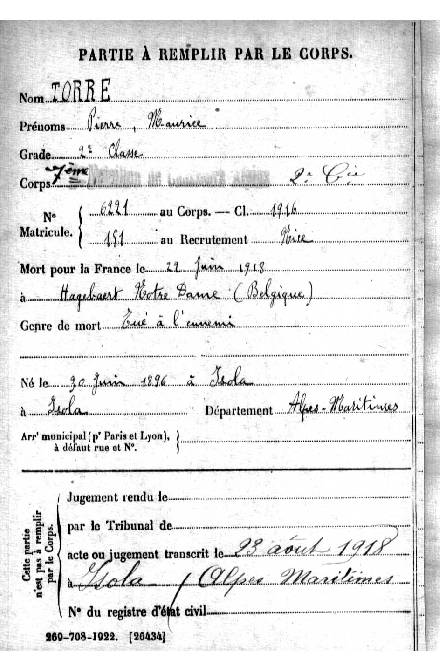 PARTIE À REMPLIR PAR LE CORPS.
Nom TORRE
Prénoms Pierre, Maurice
Grade 2e Classe
Corps 7ème 2e Cie
N° Matricule. { 6221 au Corps. — Cl. 1916
151 au Recrutement Nice
Mort pour la France le 22 Juin 1918
à Hagebaert Notre Dame (Belgique)
Genre de mort Tué à l'ennemi
Né le 30 Juin 1896 à Isola
à Isola Département Alpes-Maritimes
Arrt municipal (pr Paris et Lyon),
à défaut rue et N°.
Cette partie n'est pas à remplir par le Corps.
Jugement rendu le
par le Tribunal de
acte ou jugement transcrit le 23 août 1918
à Isola / Alpes Maritimes
N° du registre d'état civil
269-708-1922. [26434]